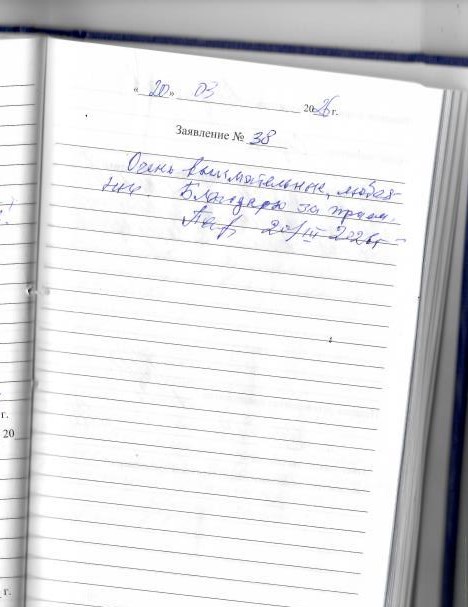 « 20 » 03 2026 г.
Заявление № 38
Очень внимательные, любез-
ные. Благодарю за прием.
20/III 2026г
г.
20
г.